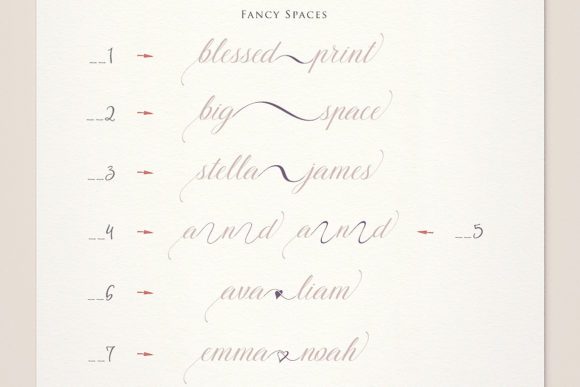 Fancy Spaces
__1 blessed print
__2 big space
__3 stella james
__4 a n d a n d __5
__6 ava liam
__7 emma noah